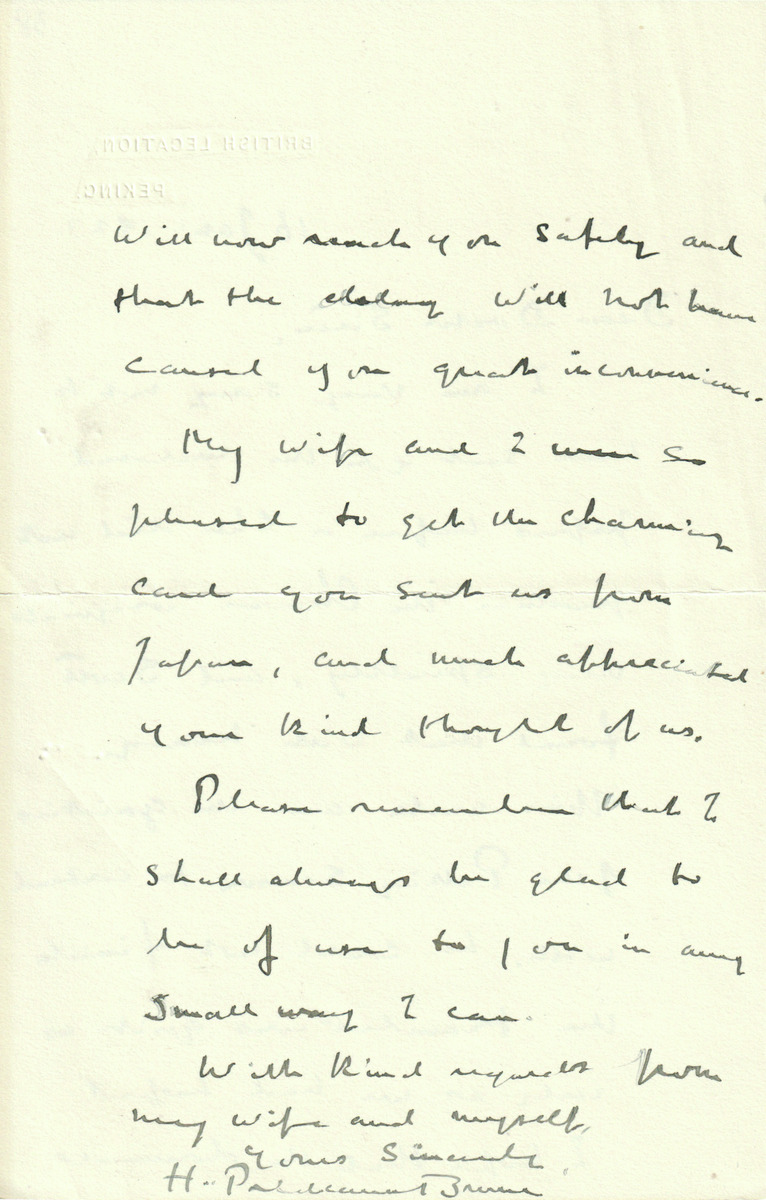 BRITISH LEGATION,
PEKING.
Will now reach you safely and
that the delay will not have
caused you great inconvenience.
My wife and I were so
pleased to get the charming
card you sent us from
Japan, and much appreciated
your kind thought of us.
Please remember that I
shall always be glad to
be of use to you in any
small way I can.
With kind regards from
my wife and myself,
Yours Sincerely,
H. Prideaux-Brune